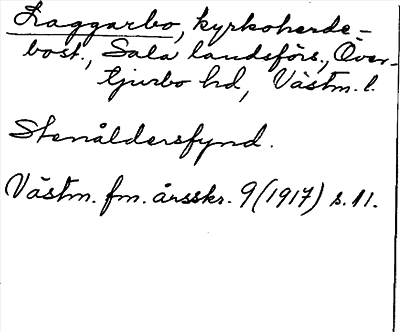 Raggarbo, kyrkoherde-
bost., Sala landsförs., Över-
tjurbo hd, Västm. l.
Stenåldersfynd.
Västm. fm. årsskr. 9 (1917) s. 11.